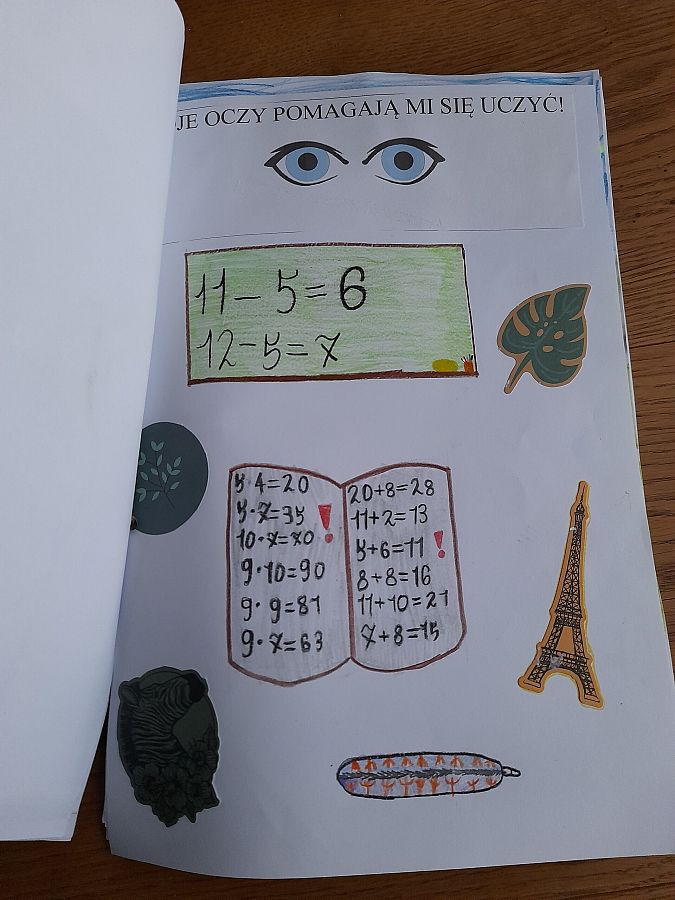 JE OCZY POMAGAJĄ MI SIĘ UCZYĆ!
11-5=6
12-5=7
5·4=20
5·7=35
10·7=70
9·10=90
9·9=81
9·7=63
!
20+8=28
11+2=13
5+6=11
8+8=16
11+10=21
7+8=15
!